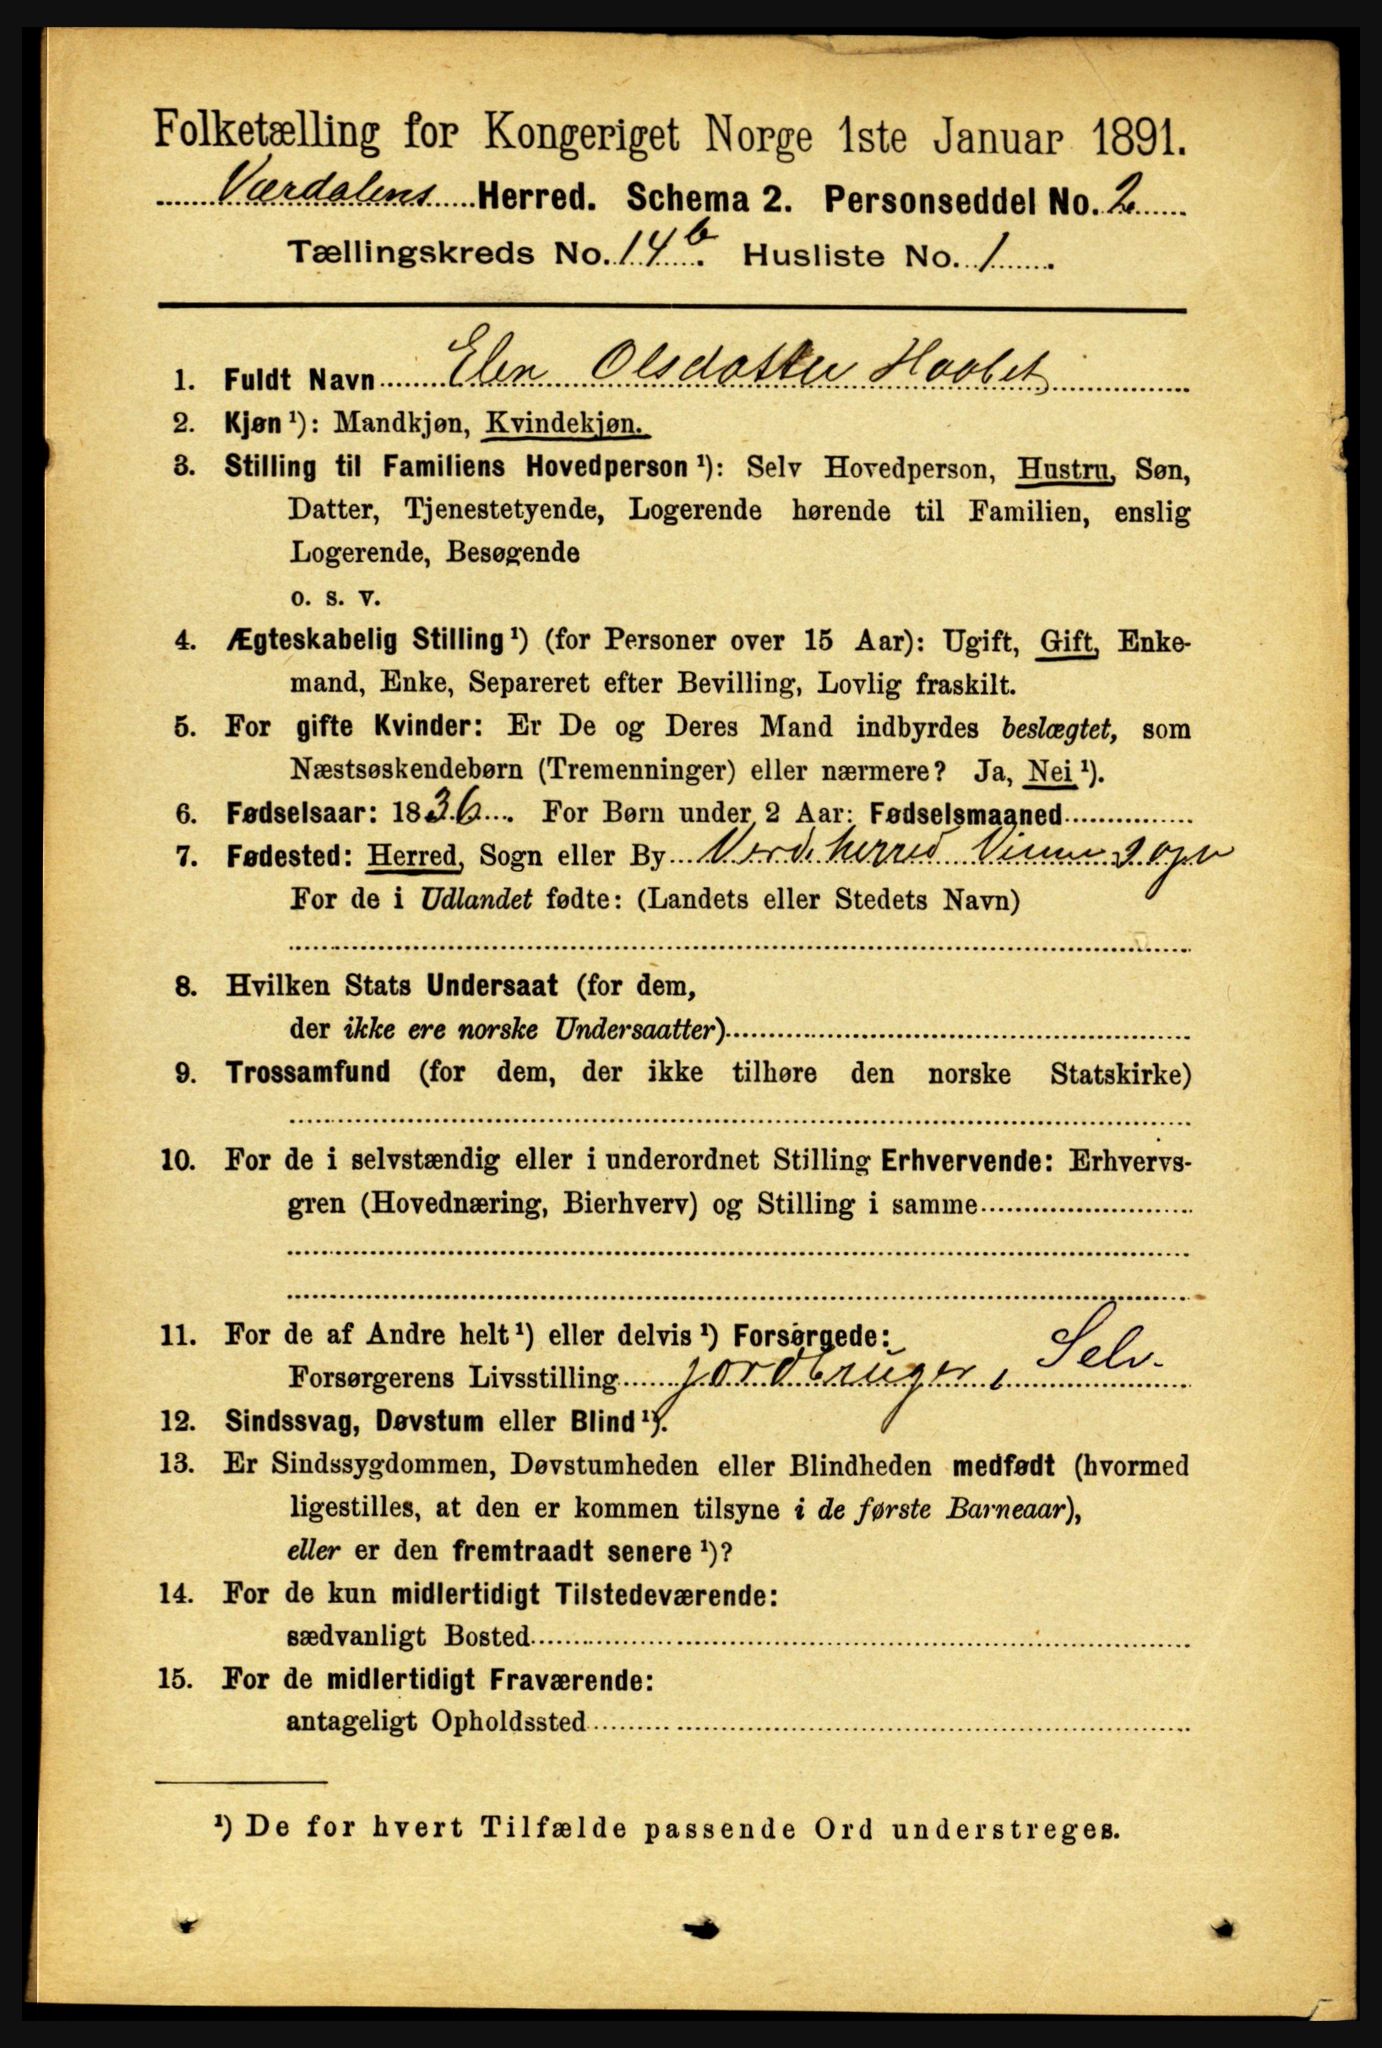 Folketælling for Kongeriget Norge 1ste Januar 1891.
Værdalens Herred. Schema 2. Personseddel No. 2
Tællingskreds No. 14 b. Husliste No. 1
1. Fuldt Navn Elen Olsdatter Haabet
2. Kjøn ¹): Mandkjøn, Kvindekjøn.
3. Stilling til Familiens Hovedperson ¹): Selv Hovedperson, Hustru, Søn,
Datter, Tjenestetyende, Logerende hørende til Familien, enslig
Logerende, Besøgende
o. s. v.
4. Ægteskabelig Stilling ¹) (for Personer over 15 Aar): Ugift, Gift, Enke-
mand, Enke, Separeret efter Bevilling, Lovlig fraskilt.
5. For gifte Kvinder: Er De og Deres Mand indbyrdes beslægtet, som
Næstsøskendebørn (Tremenninger) eller nærmere? Ja, Nei ¹).
6. Fødselsaar: 1836. For Børn under 2 Aar: Fødselsmaaned
7. Fødested: Herred, Sogn eller By Verd. herred Vinne Sogn
For de i Udlandet fødte: (Landets eller Stedets Navn)
8. Hvilken Stats Undersaat (for dem,
der ikke ere norske Undersaatter)
9. Trossamfund (for dem, der ikke tilhøre den norske Statskirke)
10. For de i selvstændig eller i underordnet Stilling Erhvervende: Erhvervs-
gren (Hovednæring, Bierhverv) og Stilling i samme
11. For de af Andre helt ¹) eller delvis ¹) Forsørgede:
Forsørgerens Livsstilling jordbruger, Selv.
12. Sindssvag, Døvstum eller Blind ¹).
13. Er Sindssygdommen, Døvstumheden eller Blindheden medfødt (hvormed
ligestilles, at den er kommen tilsyne i de første Barneaar),
eller er den fremtraadt senere ¹)?
14. For de kun midlertidigt Tilstedeværende:
sædvanligt Bosted
15. For de midlertidigt Fraværende:
antageligt Opholdssted
¹) De for hvert Tilfælde passende Ord understreges.